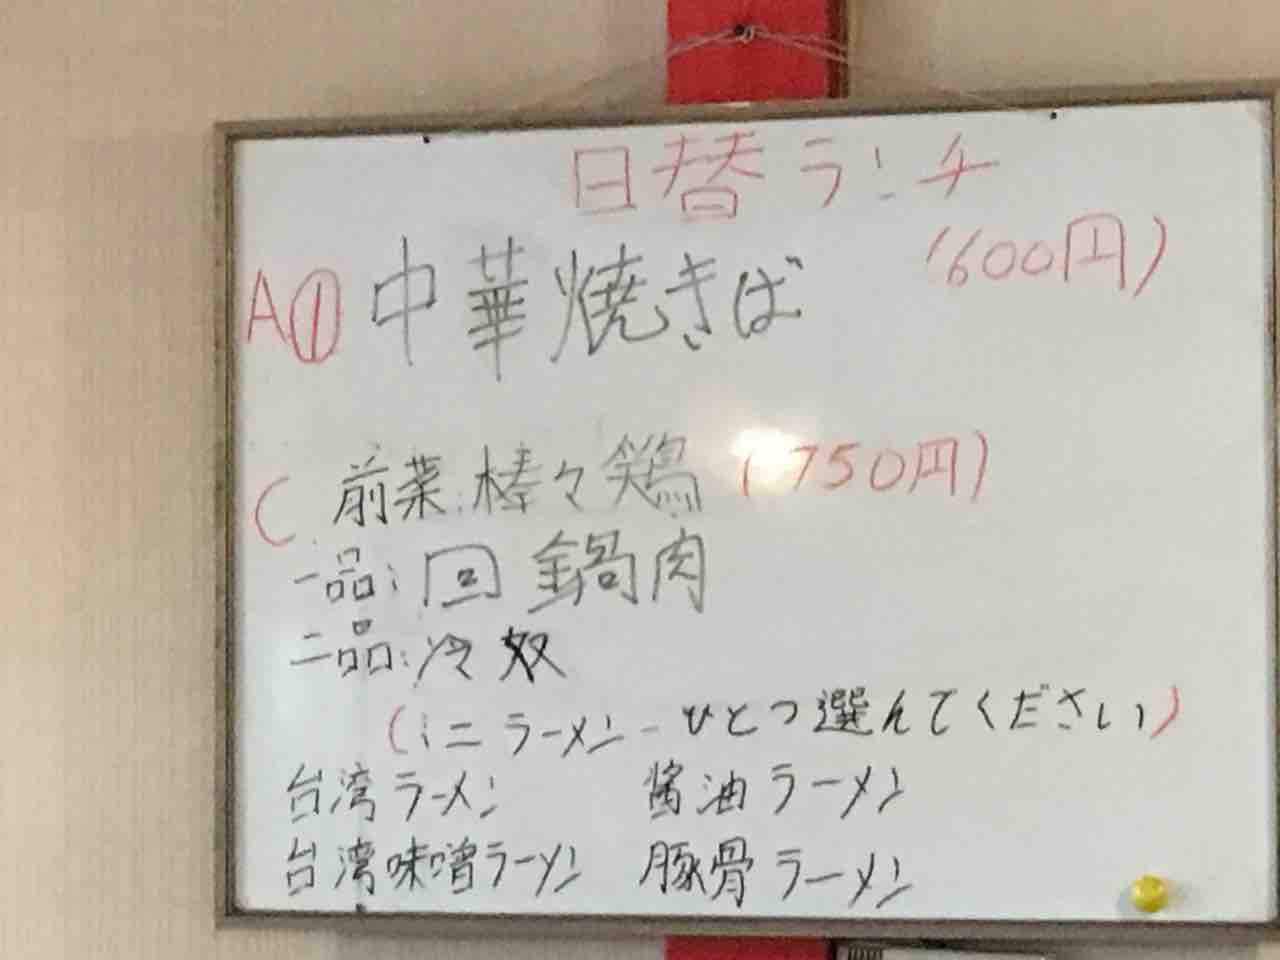 日替ランチ
(600円)
A① 中華焼きば
C 前菜:棒々鶏 (750円)
一品:回鍋肉
二品:冷奴
(ミニラーメン-ひとつ選んてください)
台湾ラーメン 醤油ラーメン
台湾味噌ラーメン 豚骨ラーメン